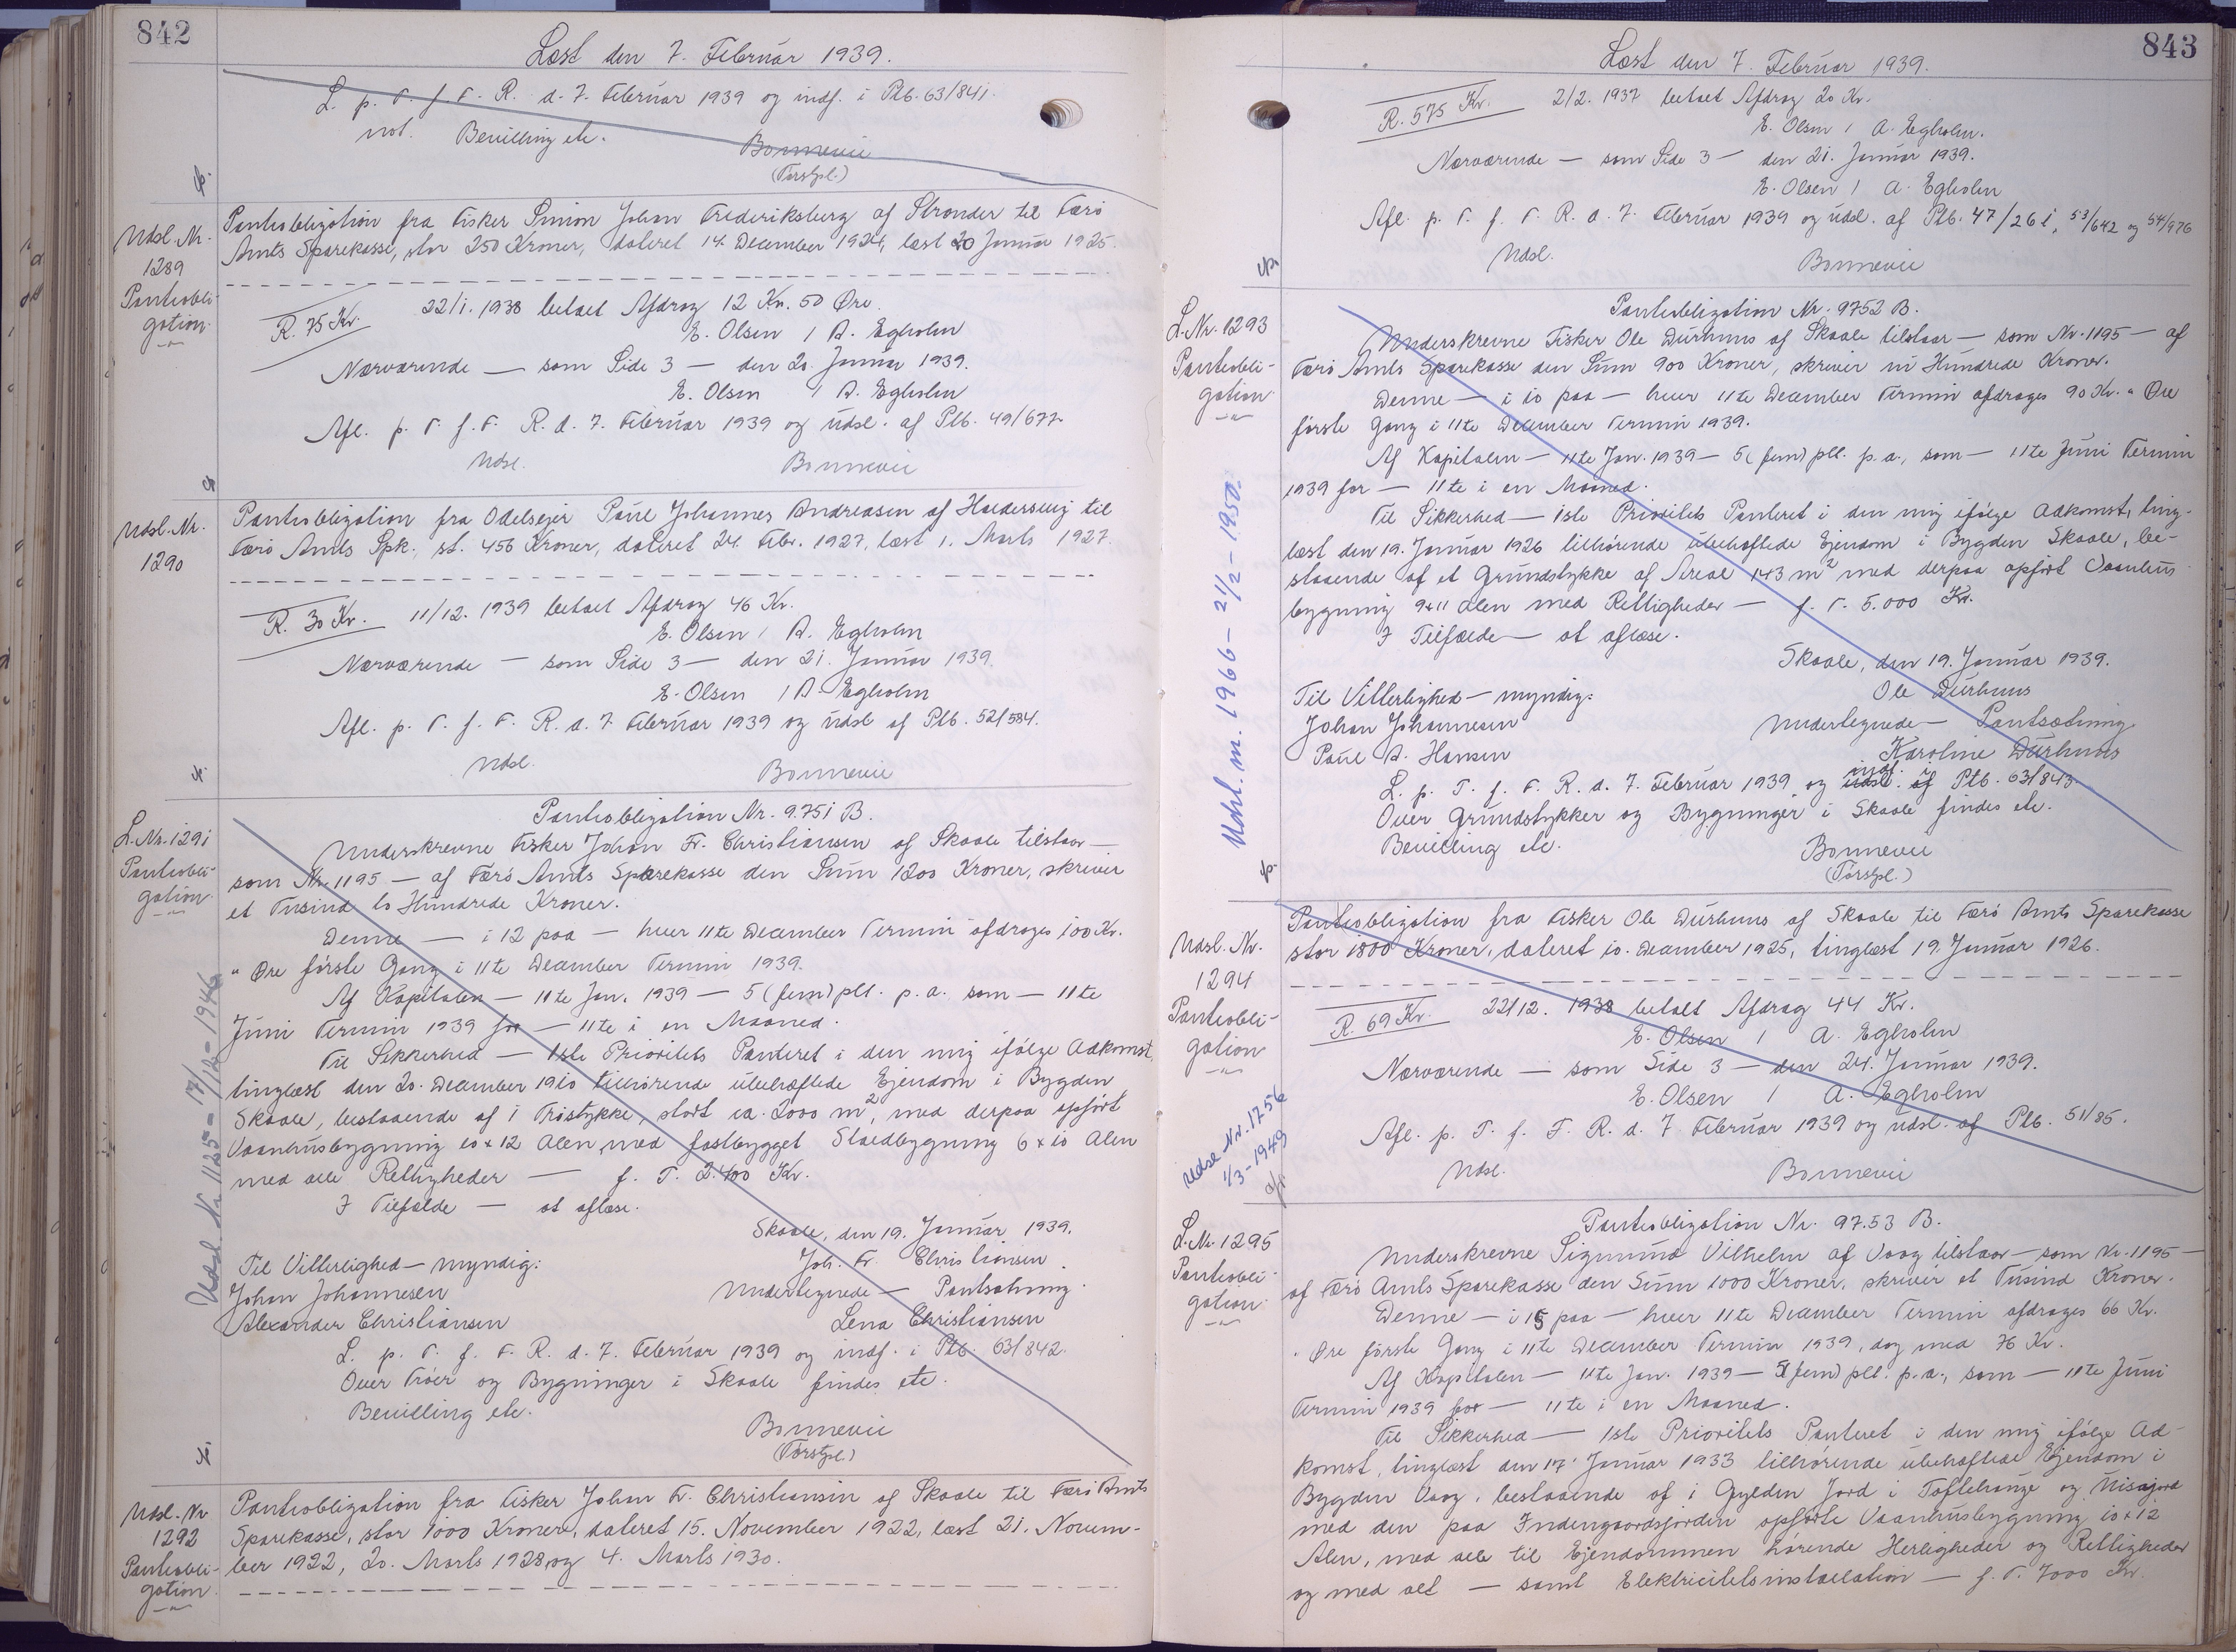 842
Læst den 7. Februar 1939.
L. p. T. f. F. R. d. 7. Februar 1939 og indf. i Ptb. 63/841.
not. Bevilling etc.
Bonnevie
(Forstpl.)
Udsl. Nr.
1289
Pantobli-
gation
Pantobligation fra Fisker Simon Johan Frederiksberg af Strender til Færø
Amts Sparekasse, stor 250 Kroner, dateret 14. December 1924, læst 20 Januar 1925.
R. 75 Kr. 22/1. 1938 betalt Afdrag 12 Kr. 50 Øre.
E. Olsen / A. Egholm
Nærværende — som Side 3 — den 20. Januar 1939.
E. Olsen / A. Egholm
Afl. p. T. f. F. R. d. 7. Februar 1939 og udsl. af Ptb. 49/677.
Udsl. Bonnevie
Udsl. Nr.
1290
Pantobligation fra Odelsejer Poul Johannes Andreasen af Haldersvig til
Færø Amts Spk., st. 456 Kroner, dateret 24. Febr. 1927, læst 1. Marts 1927.
R. 30 Kr. 11/12. 1939 betalt Afdrag 46 Kr.
E. Olsen / A. Egholm
Nærværende — som Side 3 — den 21. Januar 1939.
E. Olsen / A. Egholm
Afl. p. T. f. F. R. d. 7. Februar 1939 og udsl af Ptb. 52/584.
Udsl. Bonnevie
L. Nr. 1291
Pantobli-
gation
Udsl. Nr. 1125 - 17/12 - 1946
Pantobligation Nr. 9751 B.
Underskrevne Fisker Johan Fr. Christiansen af Skaale tilstaar —
som Nr. 1195 — af Færø Amts Sparekasse den Sum 1200 Kroner, skriver
et Tusind to Hundrede Kroner.
Denne — i 12 paa — hver 11te December Termin afdrages 100 Kr.
" Øre første Gang i 11te December Termin 1939.
Af Kapitalen — 11te Jan. 1939 — 5 (fem) pCt. p. a. som — 11te
Juni Termin 1939 for — 11te i en Maaned.
Til Sikkerhed — 1ste Prioritets Panteret i den mig ifølge Adkomst,
tinglæst den 20. December 1910 tilhørende ubehæftede Ejendom i Bygden
Skaale, bestaaende af 1 Trøstykke, stort ca. 2000 m², med derpaa opført
Vaanhusbygning 10 x 12 Alen, med fastbygget Staldbygning 6 x 10 Alen
med alle Rettigheder — f. T. 2.400 Kr.
I Tilfælde — at aflæse.
Skaale, den 19. Januar 1939.
Til Vitterlighed — myndig: Joh. Fr. Christiansen
Johan Johannesen Undertegnede — Pantsætning.
Alexander Christiansen Lena Christiansen
L. p. T. f. F. R. d. 7. Februar 1939 og indf. i Ptb. 63/842.
Over Trøer og Bygninger i Skaale findes etc.
Bevilling etc.
Bonnevie
(Forstpl.)
Udsl. Nr.
1292
Pantobli-
gation
Pantobligation fra Fisker Johan Fr. Christiansen af Skaale til Færø Amts
Sparekasse, stor 1000 Kroner, dateret 15. November 1922, læst 21. Novem-
ber 1922, 20. Marts 1928, og 4. Marts 1930.
843
Læst den 7. Februar 1939.
R. 575 Kr. 2/2. 1937 betalt Afdrag 20 Kr.
E. Olsen / A. Egholm.
Nærværende — som Side 3 — den 21. Januar 1939.
E. Olsen / A. Egholm
Afl. p. T. f. F. R. d. 7. Februar 1939 og udsl. af Ptb. 47/261, 53/642 og 54/976
Udsl. Bonnevie
L. Nr. 1293
Pantobli-
gation
Udsl. m. 1966 - 21/2 - 1950.
Pantobligation Nr. 9752 B.
Underskrevne Fisker Ole Durhuus af Skaale tilstaar — som Nr. 1195 — af
Færø Amts Sparekasse den Sum 900 Kroner, skriver ni Hundrede Kroner.
Denne — i 10 paa — hver 11te December Termin afdrages 90 Kr. " Øre
første Gang i 11te December Termin 1939.
Af Kapitalen — 11te Jan. 1939 — 5 (fem) pCt. p. a., som — 11te Juni Termin
1939 for — 11te i en Maaned.
Til Sikkerhed — 1ste Prioritets Panteret i den mig ifølge Adkomst, ting-
læst den 19. Januar 1926 tilhørende ubehæftede Ejendom i Bygden Skaale, be-
staaende af et Grundstykke af Areal 143 m² med derpaa opført Vaanhus-
bygning 9 x 11 Alen med Rettigheder — f. T. 5.000 Kr.
I Tilfælde — at aflæse.
Skaale, den 19. Januar 1939.
Til Vitterlighed — myndig: Ole Durhuus
Johan Johannesen Undertegnede — Pantsætning
Poul A. Hansen Karoline Durhuus
L. p. T. f. F. R. d. 7. Februar 1939 og indf. i Ptb. 63/843.
Over Grundstykker og Bygninger i Skaale findes etc.
Bevilling etc. Bonnevie
(Forstpl.)
Udsl. Nr.
1294
Pantobli-
gation
Pantobligation fra Fisker Ole Durhuus af Skaale til Færø Amts Sparekasse
stor 1800 Kroner, dateret 10. December 1925, tinglæst 19. Januar 1926.
R. 69 Kr. 22/12. 1938 betalt Afdrag 44 Kr.
E. Olsen / A. Egholm
Nærværende — som Side 3 — den 24. Januar 1939.
E. Olsen / A. Egholm
Afl. p. T. f. F. R. d. 7. Februar 1939 og udsl. af Ptb. 51/85.
Udsl. Bonnevie
Udsl Nr. 1756
1/3 - 1949
L. Nr. 1295
Pantobli-
gation
Pantobligation Nr. 9753 B.
Underskrevne Sigmund Vilhelm af Vaag tilstaar — som Nr. 1195 —
af Færø Amts Sparekasse den Sum 1000 Kroner, skriver et Tusind Kroner.
Denne — i 15 paa — hver 11te December Termin afdrages 66 Kr.
" Øre første Gang i 11te December Termin 1939, dog med 76 Kr.
Af Kapitalen — 11te Jan. 1939 — 5 (fem) pCt. p. a., som — 11te Juni
Termin 1939 for — 11te i en Maaned.
Til Sikkerhed — 1ste Prioritets Panteret i den mig ifølge Ad-
komst, tinglæst den 17. Januar 1933 tilhørende ubehæftede Ejendom i
Bygden Vaag, bestaaende af 1 Gylden Jord i Toftehauge og Nisajord
med den paa Indengaardsjorden opførte Vaanhusbygning 10 x 12
Alen, med alle til Ejendommen hørende Herligheder og Rettigheder
og med alt — samt Elektricitetsinstallation — f. T. 7000 Kr.